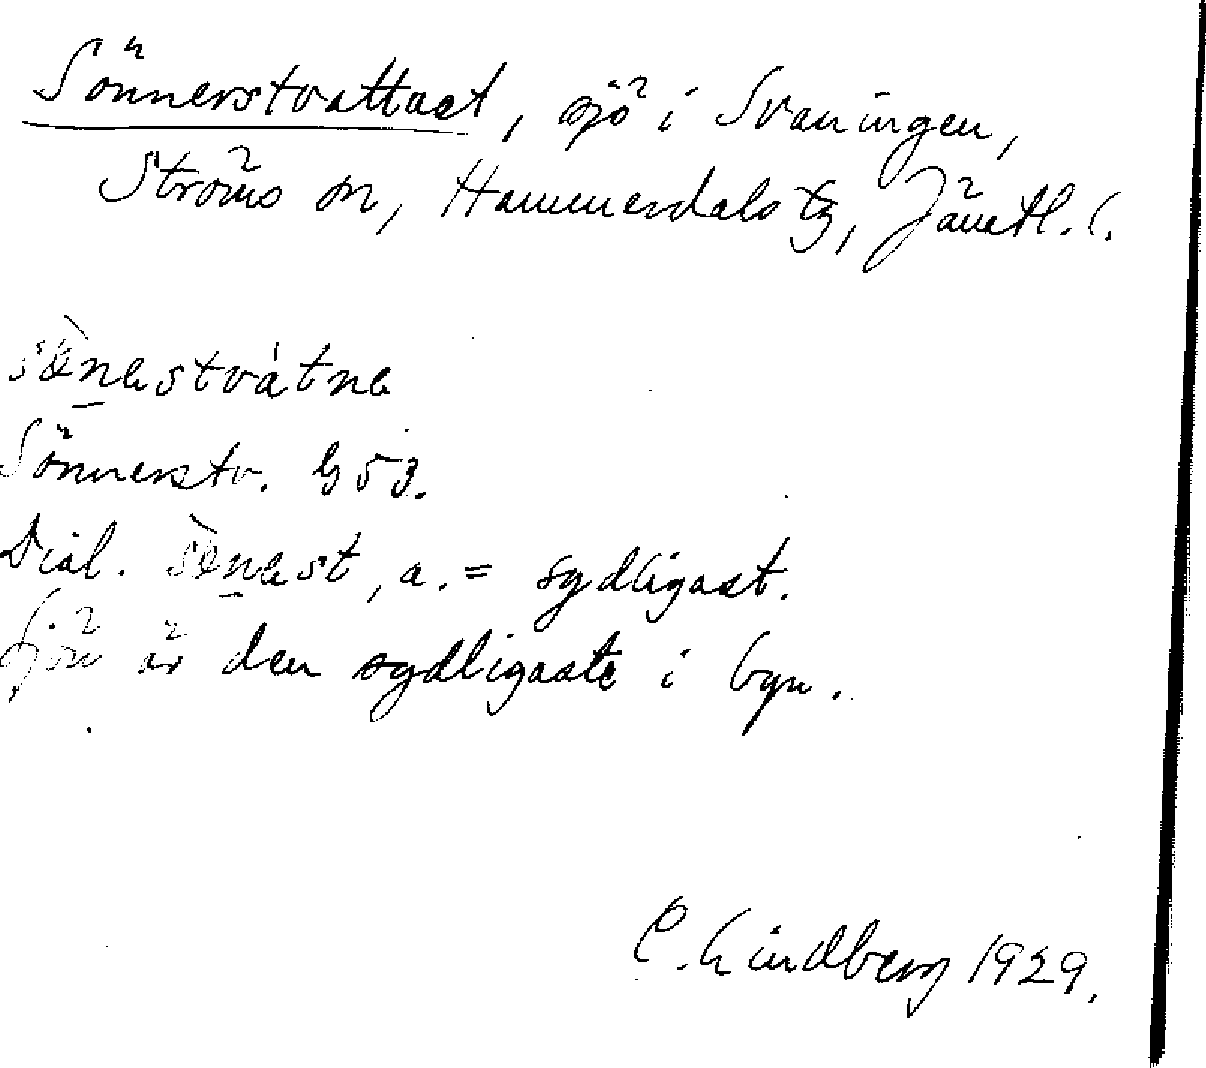 Sönnerstvattnet, sjö i Svaningen,
Ströms sn, Hammerdals tg, Jämtl. l.
sènastvátna
Sönnerstv. G 53.
Dial. sènast, a. = sydligast.
Sjön är den sydligaste i byn.
C. Lindberg 1929.